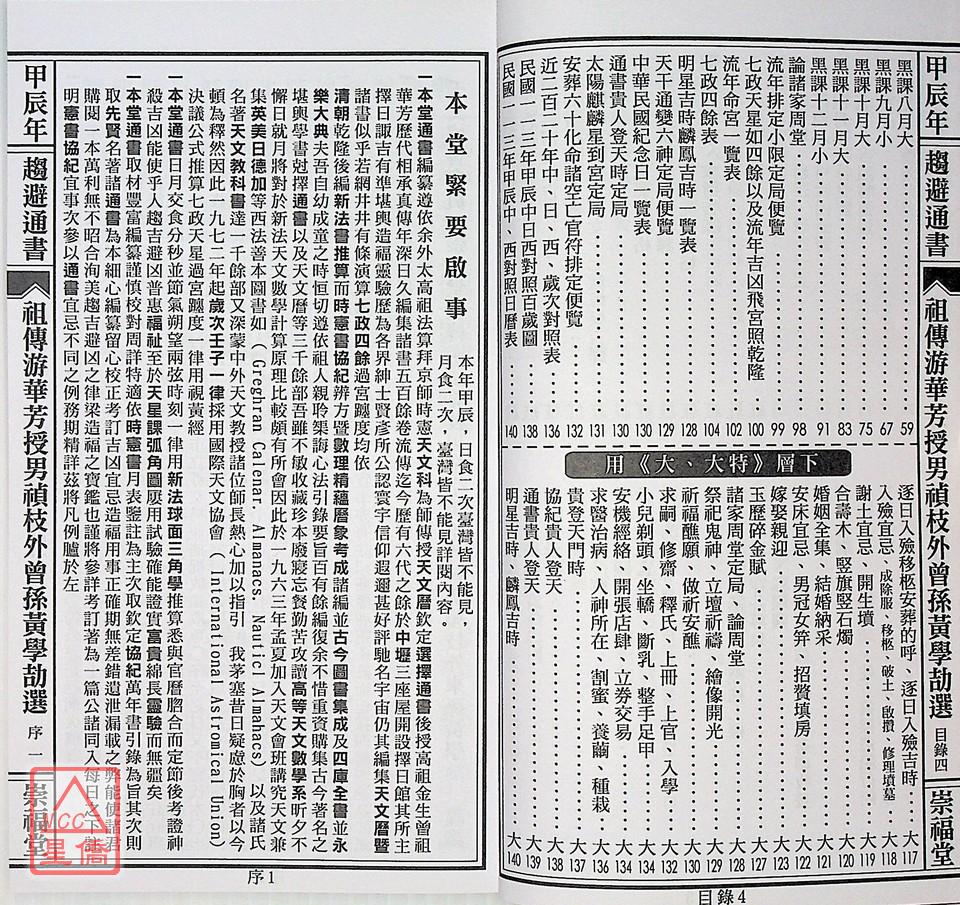 甲辰年
趨避通書
祖傳游華芳授男禎枝外曾孫黃學劼選
目錄四
崇福堂
黑課八月大 59
黑課九月小 67
黑課十月大 75
黑課十一月大 83
黑課十二月小 91
論諸家周堂 98
流年排定小限定局便覽 99
七政天星如四餘以及流年吉凶飛宮照乾隆 100
流年命宮一覽表 102
七政四餘表 104
明星吉時麟鳳吉時一覽表 128
天干通變六神定局便覽 129
中華民國紀念日一覽表 130
通書貴人登天時定局 130
太陽麒麟星到宮定局 131
安葬六十化命諸空亡官符排定便覽 132
近二百二十年中、日、西、歲次對照表 136
民國一一三年甲辰中日西對照百歲圖 138
民國一一三年甲辰中 西對照日曆表 140
下層《特大、大》用
逐日入殮移柩安葬的呼、逐日入殮吉時 大117
入殮宜忌、成除服、移柩、破土、啟攢、修理墳墓 大118
謝土宜忌、開生墳 大119
合壽木、竪旗竪石燭 大120
婚姻全集、結婚納采 大121
安床宜忌、男冠女笄、招贅填房 大122
嫁娶親迎 大123
玉歷碎金賦 大125
諸家周堂定局、論周堂 大127
祭祀鬼神、立壇祈禱、繪像開光 大129
祈福醮願、做祈安醮 大130
求嗣、修齋、釋氏、上冊、上官、入學 大132
小兒剃頭、坐轎、斷乳、整手足甲 大134
安機經絡、開張店肆、立券交易 大134
求醫治病、人神所在、割蜜、養繭、種栽 大136
貴登天門時 大137
協紀貴人登天 大138
通書貴人登天 大139
明星吉時、麟鳳吉時 大140
目錄4
本堂緊要啟事
本年甲辰，日食二次臺灣皆不能見，
月食二次，臺灣皆不能見詳閱內容。
一本堂通書編纂遵依余外太高祖法算拜京師時憲天文科為師傳授天文曆欽定選擇通書後授高祖金生曾祖
華芳歷代相承真傳年深日久編集諸書五百餘卷流傳迄今歷有六代之餘於中壢三座屋開設擇日館其所主
擇日諏吉有準堪輿造福靈驗歷為各界紳士賢彥所公認寰宇信仰遐邇甚好評馳名宇宙仍其編集天文曆暨
諸書似乎若網井井有條演算七政四餘過宮躔度均依
清朝乾隆後編新法書推算而時憲書協紀辨方暨數理精蘊曆象考成諸編並古今圖書集成及四庫全書並永
樂大典夫吾自幼成童之時恒切遵依祖人親聆榘誨心法引錄要旨百有餘編復余不惜重資購集古今著名之
堪輿學書尅擇通書以及天文曆等三千餘部吾雖不敏收藏珍本廢寢忘餐勤苦攻讀高等天文數學系昕夕不
懈日就月將對於新法天文數學計算原理比較頗有所會因此於一九六三年孟夏加入天文會班講究天文兼
集英美日德加等西法善本圖書如 (Greghran Calenar. Almanacs. Nauticl Almahacs) 以及諸氏
名著天文教科書達一千餘部又深蒙中外天文教授諸位師長熱心加以指引 我茅塞昔日疑慮於胸者以今
頓為釋然因此一九七二年起歲次壬子一律採用國際天文協會 (International Astromical Union)
決議公式推算七政天星過宮躔度一律用視黃經
一本堂通書日月交食分秒並節氣朔望兩弦時刻一律用新法球面三角學推算悉與官曆脗合而定節後考證神
殺吉凶能使乎人趨吉避凶普惠福祉至於天星課弧角圖屢用試驗確能證實富貴綿長靈驗而無疆矣
一本堂通書取材豐富編纂謹慎校對周詳特適依時憲書月表鑒註為主次取欽定協紀萬年書引錄為旨其次則
取先賢名著諸通書為本細心編纂留心校正考訂吉凶宜忌造福用事正確期無差錯遺泄漏載之弊能使諸君
購閱一本萬利無不昭合洵美趨吉避凶之律梁造福之寶鑑也謹將參詳考訂著為一篇公諸同入每日之下註
明憲書協紀宜事次參以通書宜忌不同之例務期精詳茲將凡例臚於左
甲辰年
趨避通書
祖傳游華芳授男禎枝外曾孫黃學劼選
序一
崇福堂
序1
WCC
星僑